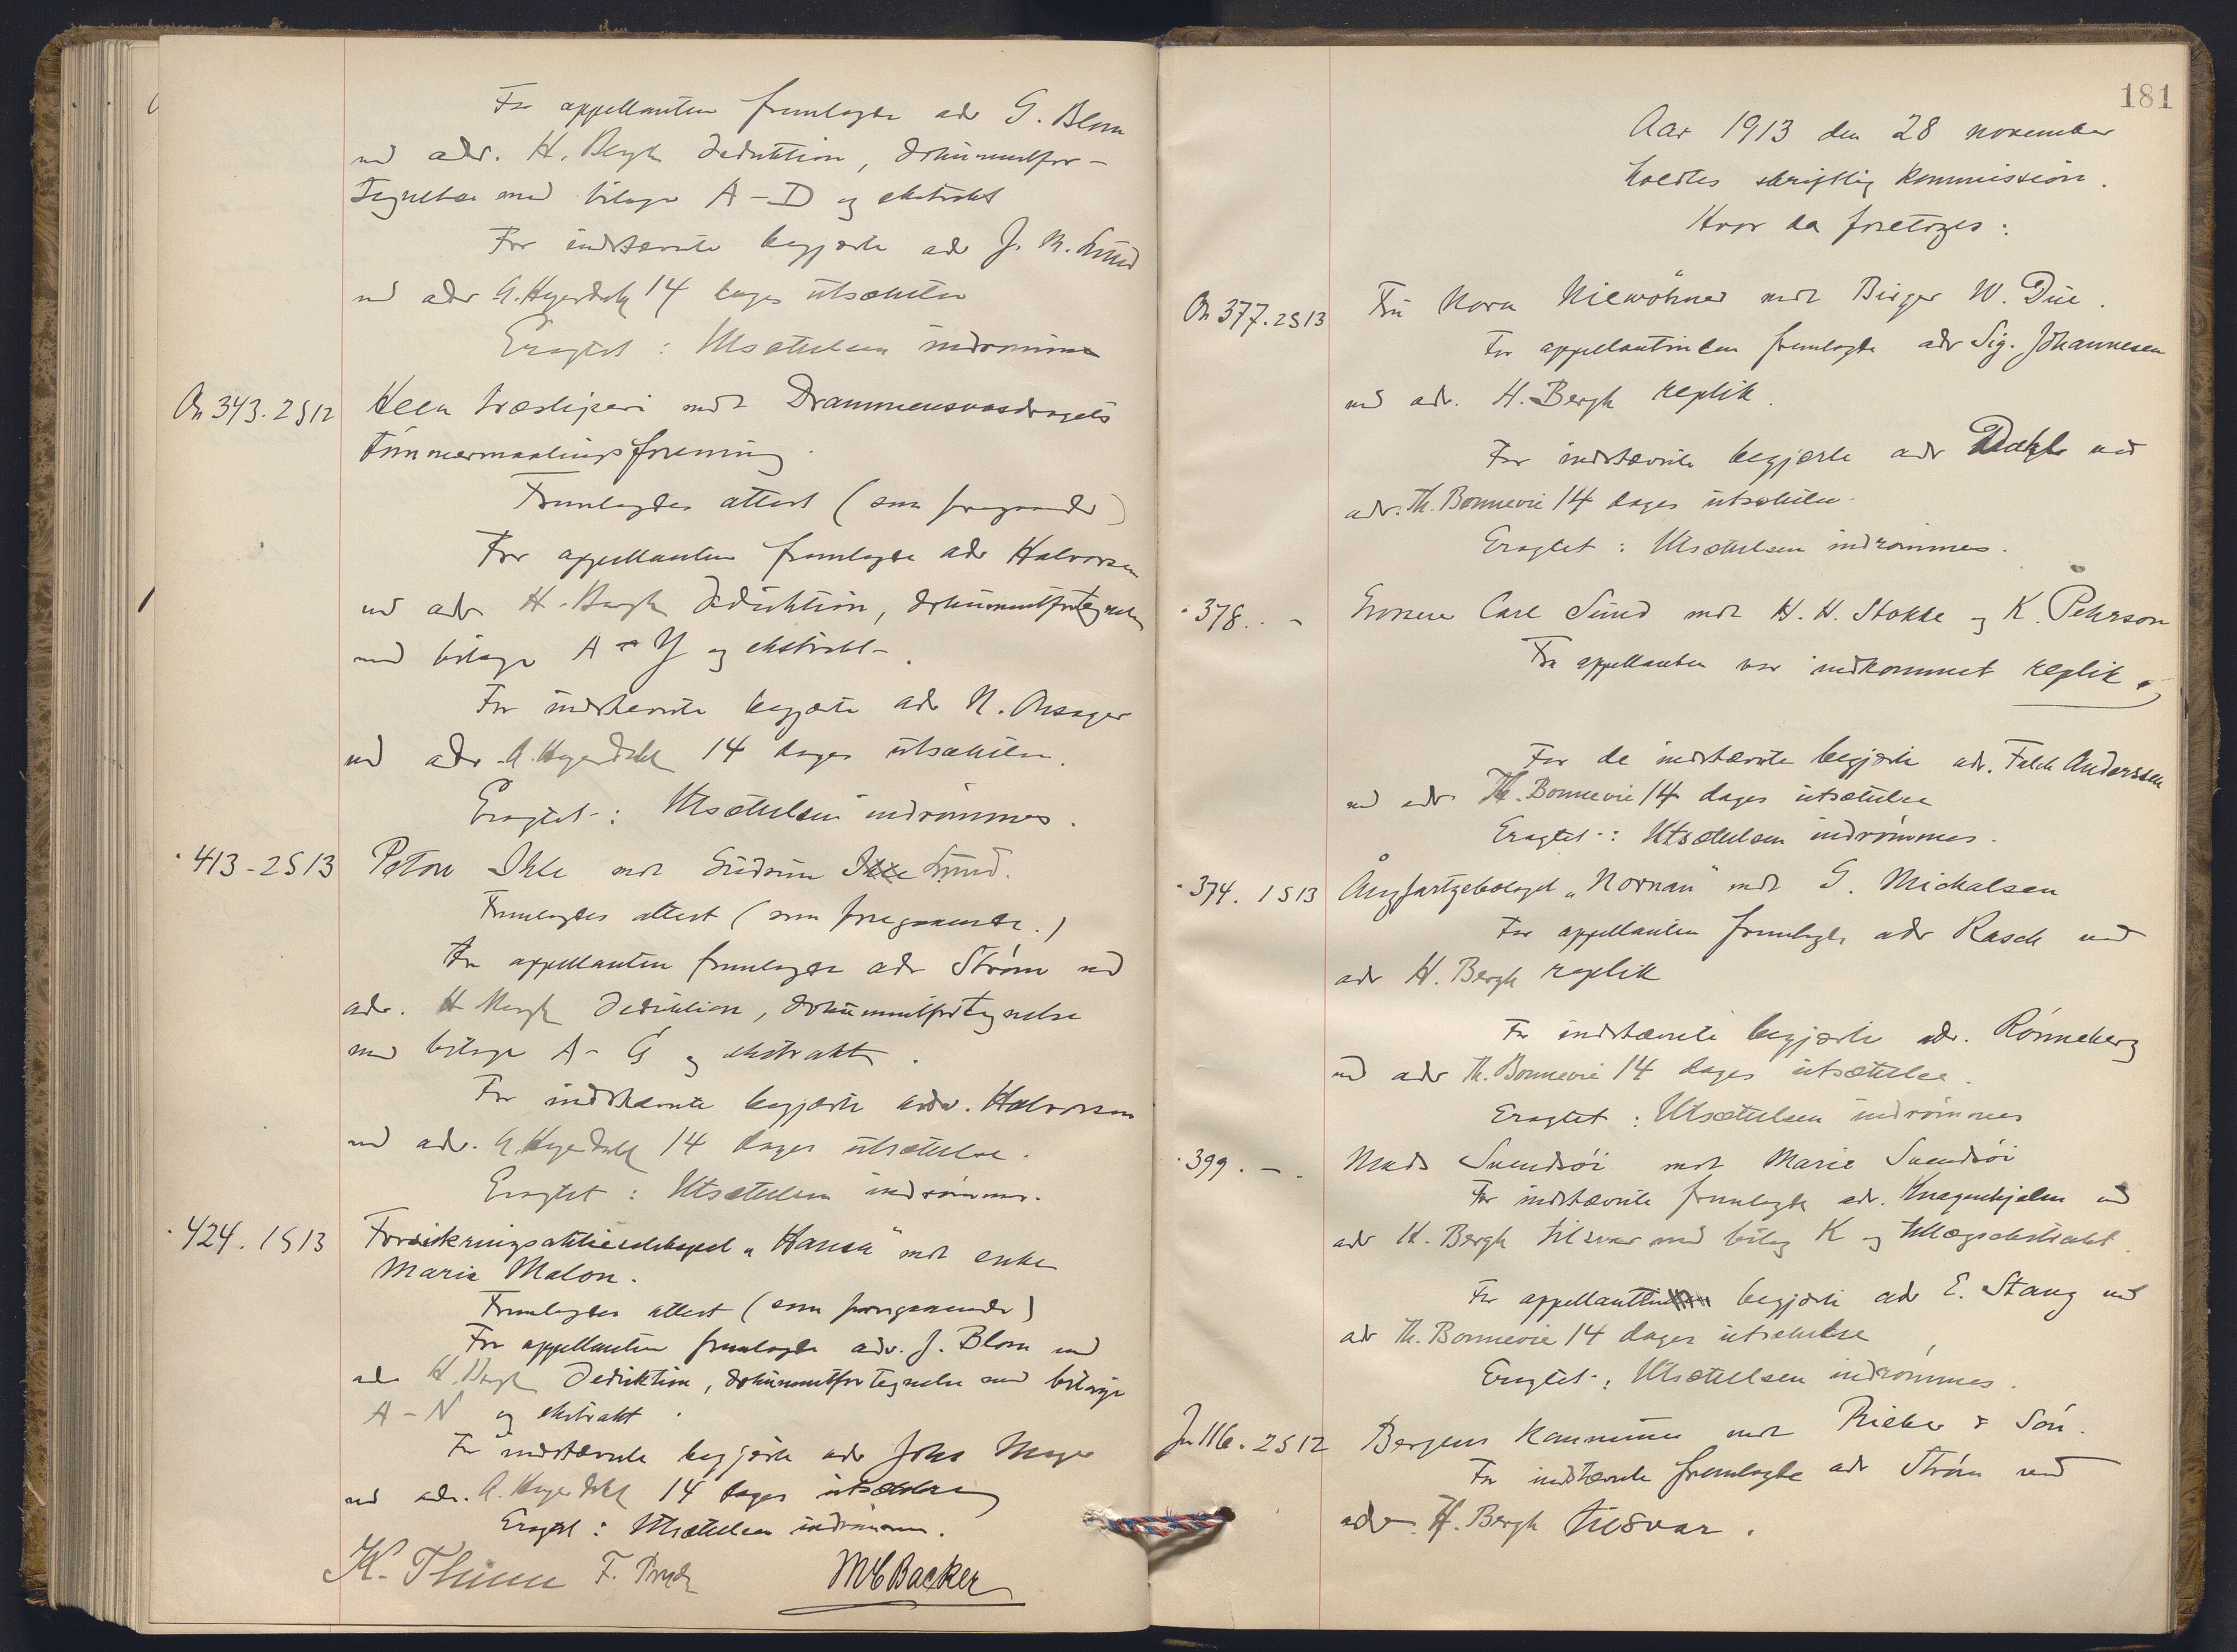 For appellanten fremlagde adv G. Blom
ved adv. H. Bergh deduktion, dokumentfor-
tegnelse med bilage A-D og ekstrakt
For indstævnte begjærte adv J. M. Lund
ved adv A. Heyerdahl 14 dages utsættelse
Eragtet: Utsættelsen indrømmes
An 343. 2S12 Heen træsliperi mot Drammensvasdragets
tømmermaalingsforening.
Fremlagdes attest (som foregaaende)
For appellanten fremlagde adv Halvorsen
ved adv H. Bergh deduktion, dokumentfortegnelse
med bilage A-Y og ekstrakt.
For indstævnte begjærte adv N. Ansager
ved adv. A. Heyerdahl 14 dages utsættelse.
Eragtet: Utsættelsen indrømmes.
" 413-2S13 Peton Ihle mot Gudrun Lund.
Fremlagdes attest (som foregaaende.)
For appellanten fremlagde adv Strøm ved
adv. H Bergh deduktion, dokumentfortegnelse
med bilage A-G og ekstrakt.
For indstævnte begjærte adv. Halvorsen
ved adv. A Heyerdahl 14 dages utsættelse.
Eragtet: Utsættelsen indrømmes.
" 424. 1S13 Forsikringsaktieselskapet "Hansa" mot enke
Maria Malon.
Fremlagdes attest (som foregaaende)
For appellanten fremlagde adv. J. Blom ved
adv H. Bergh deduktion, dokumentfortegnelse med bilage
A-N og ekstrakt.
For indstævnte begjærte adv Johs Meyer
ved adv. A. Heyerdahl 14 dages utsættelse
Eragtet: Utsættelsen indrømmes.
K. Thinn F. MCBacker
181
Aar 1913 den 28 november
holdtes skriftlig kommission.
Hvor da foretoges:
An 377. 2S13 Fru Nora Niewöhner mot Birger W. Due.
For appellantinden fremlagde adv Sig. Johannesen
ved adv. H. Bergh replik.
For indstævnte begjærte adv Dahl ved
adv. Th. Bonnevie 14 dages utsættelse.
Eragtet: Utsættelsen indrømmes.
" 378. - Grosserer Carl Lund mot H. H. Stokke og K. Pehrson
Fra appellanten var indkommet replik.
For de indstævnte begjærte adv. Falch Anderssen
ved adv Th. Bonnevie 14 dages utsættelse
Eragtet: Utsættelsen indrømmes.
" 374. 1S13 Ångfartygsbolaget "Nornan" mot G. Michalsen
For appellanten fremlagde adv Rasch ved
adv H. Bergh replik
For indstævnte begjærte adv. Rønneberg
ved adv Th. Bonnevie 14 dages utsættelse.
Eragtet: Utsættelsen indrømmes
" 399. - . Mads Svendsøi mot Marie Svendsøi
For indstævnte fremlagde adv. Knagenhjelm ved
adv H. Bergh tilsvar med bilag K og tillægsekstrakt.
For appellanten begjærte adv E. Stang ved
adv Th. Bonnevie 14 dages utsættelse
Eragtet: Utsættelsen indrømmes.
Ju 116. 2S12 Bergens kommune mot Rieber & Søn.
For indstævnte fremlagde adv Strøm ved
adv. H. Bergh tilsvar.